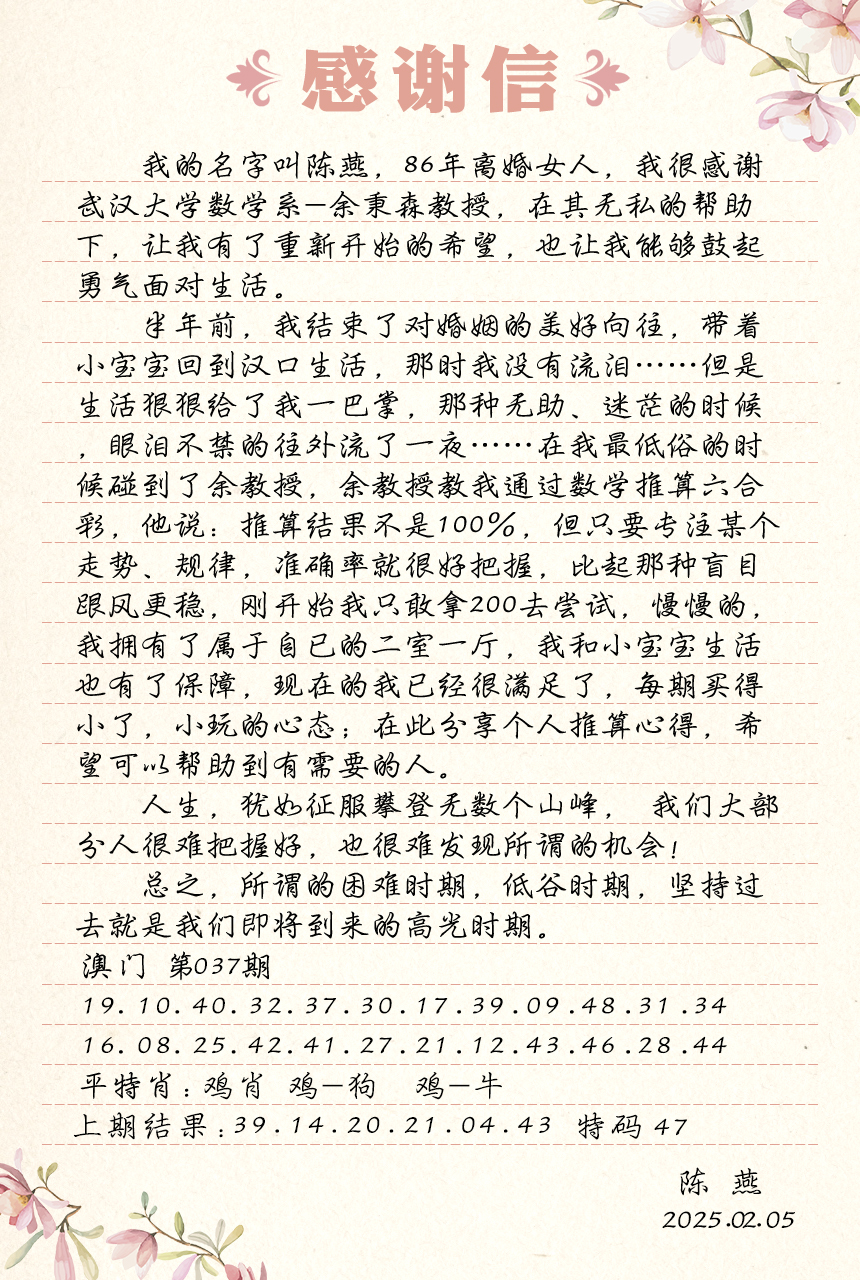 感谢信
我的名字叫陈燕，86年离婚女人，我很感谢
武汉大学数学系—余秉森教授，在其无私的帮助
下，让我有了重新开始的希望，也让我能够鼓起
勇气面对生活。
半年前，我结束了对婚姻的美好向往，带着
小宝宝回到汉口生活，那时我没有流泪……但是
生活狠狠给了我一巴掌，那种无助、迷茫的时候
，眼泪不禁的往外流了一夜……在我最低俗的时
候碰到了余教授，余教授教我通过数学推算六合
彩，他说：推算结果不是100%，但只要专注某个
走势、规律，准确率就很好把握，比起那种盲目
跟风更稳，刚开始我只敢拿200去尝试，慢慢的，
我拥有了属于自已的二室一厅，我和小宝宝生活
也有了保障，现在的我已经很满足了，每期买得
小了，小玩的心态；在此分享个人推算心得，希
望可以帮助到有需要的人。
人生，犹如征服攀登无数个山峰， 我们大部
分人很难把握好，也很难发现所谓的机会！
总之，所谓的困难时期，低谷时期，坚持过
去就是我们即将到来的高光时期。
澳门 第037期
19.10.40.32.37.30.17.39.09.48.31.34
16.08.25.42.41.27.21.12.43.46.28.44
平特肖：鸡肖 鸡—狗 鸡—牛
上期结果：39.14.20.21.04.43 特码 47
陈 燕
2025.02.05